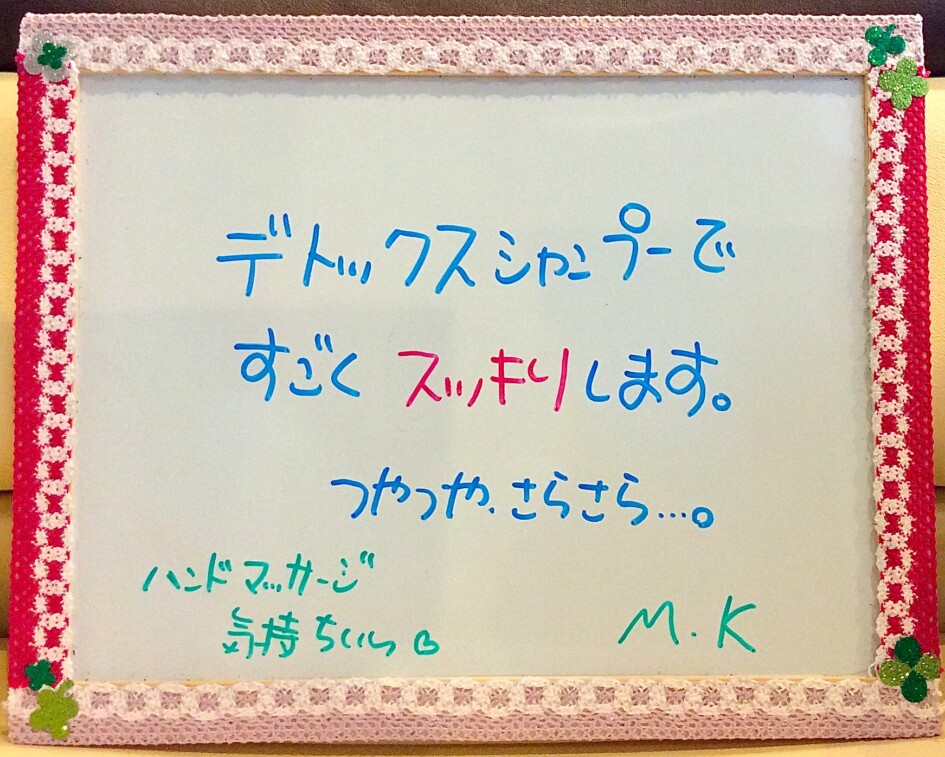 デトックスシャンプーで
すごくスッキリします。
つやつや、さらさら…。
ハンドマッサージ
気持ちいい♡
M.K